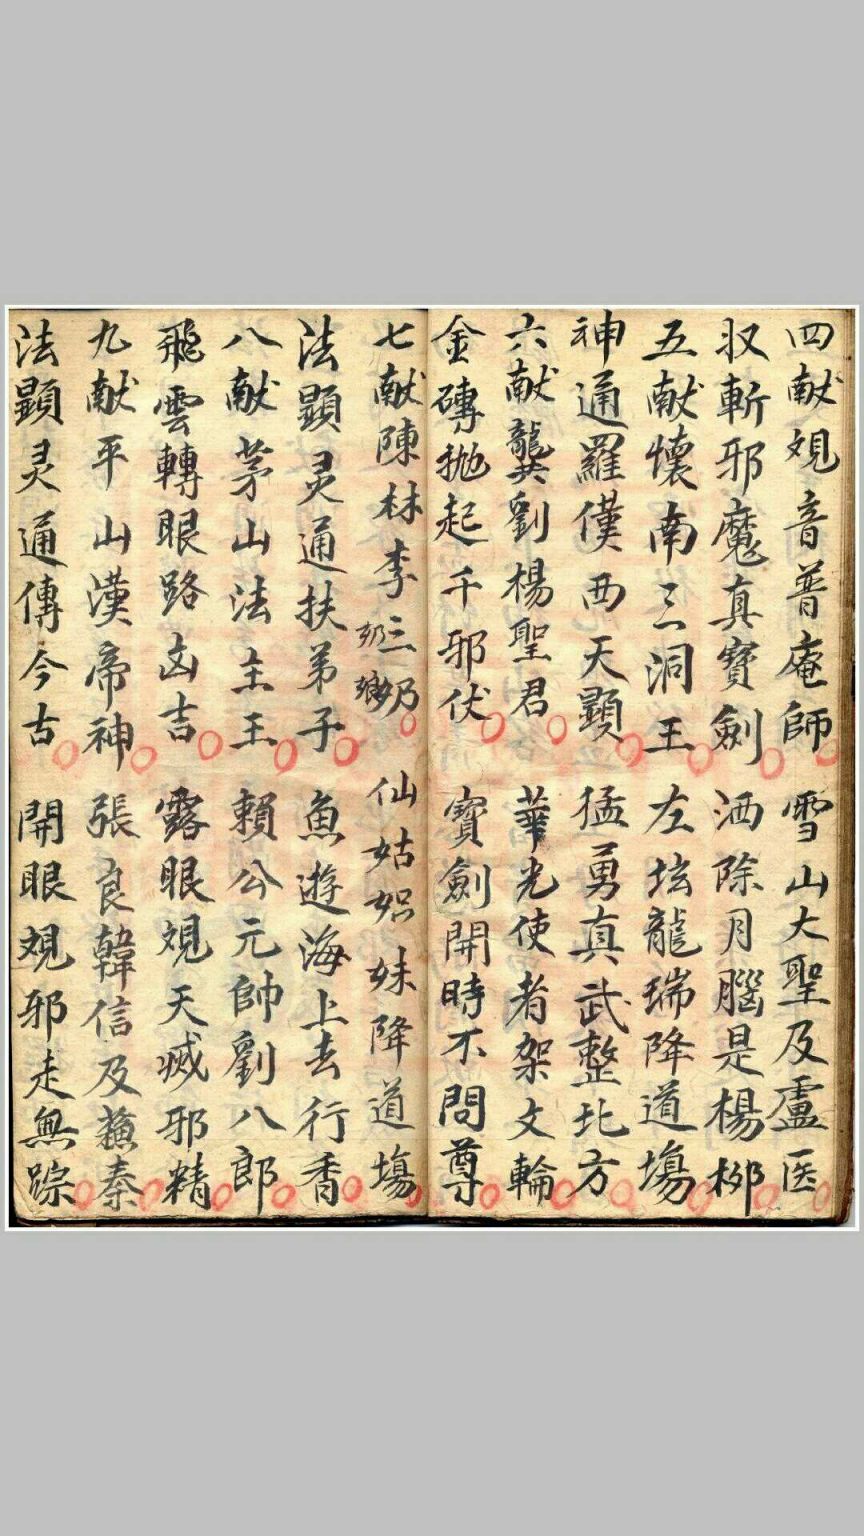 四献覌音普庵師　雪山大聖及盧医
収斬邪魔真寶劍　洒除月腦是楊柳
五献懷南三洞王　左坛龍瑞降道場
神通羅僕西天顕　猛勇真武整北方
六献龔劉楊聖君　華光使者架文輪
金磚抛起千邪伏　寶劍開時不問尊
七献陳林李三奶　仙姑姒妹降道場
奶娘
法顕灵通扶弟子　魚遊海上去行香
八献茅山法主王　賴公元帥劉八郎
飛雲轉眼路凶吉　露眼覌天滅邪精
九献平山漢帝神　張良韓信及蘇秦
法顕灵通傳今古　開眼覌邪走無踪